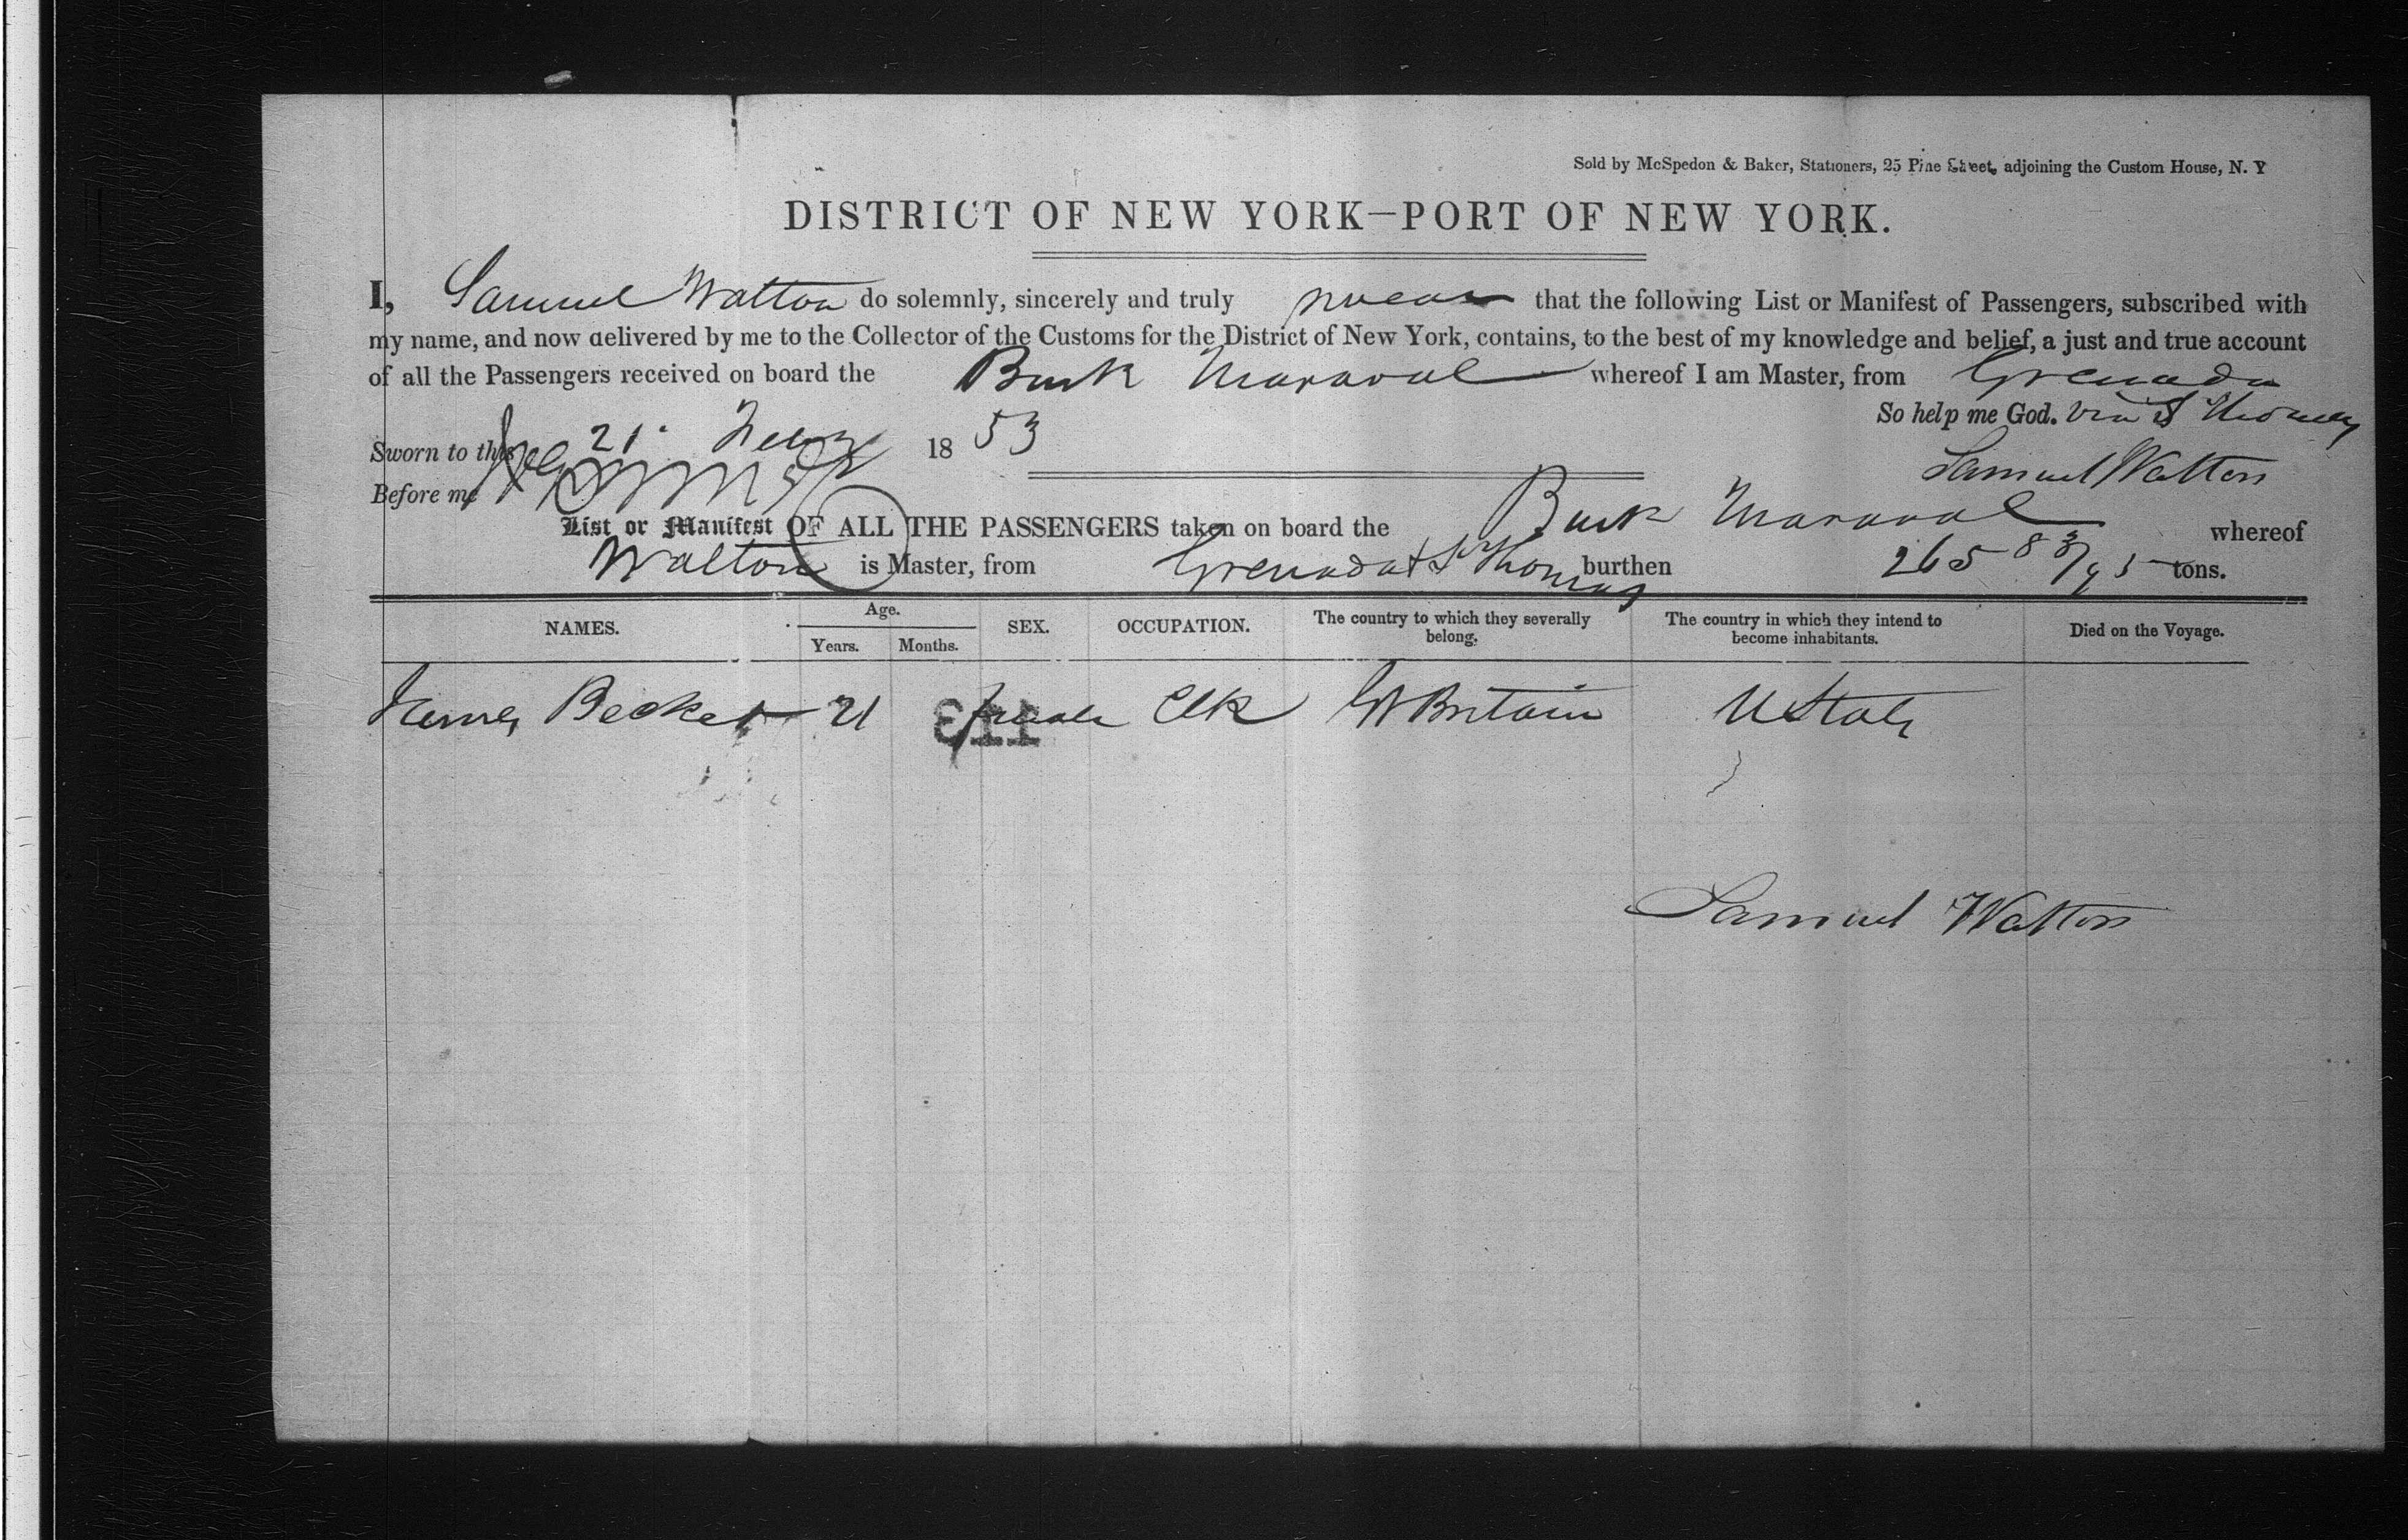 Sold by McSpedon & Baker, Stationers, 25 Pine Street, adjoining the Custom House, N. Y
DISTRICT OF NEW YORK—PORT OF NEW YORK.
I, Samuel Walton do solemnly, sincerely and truly swear that the following List or Manifest of Passengers, subscribed with
my name, and now delivered by me to the Collector of the Customs for the District of New York, contains, to the best of my knowledge and belief, a just and true account
of all the Passengers received on board the Bark Maraval whereof I am Master, from Grenada
So help me God. Via St Thomas
Sworn to this 21 1853
Samuel Walton
Before me
List or Manifest OF ALL THE PASSENGERS taken on board the Bark Maraval whereof
Walton is Master, from Grenada & St Thomas burthen 265 83/95 tons.
NAMES. Age. SEX. OCCUPATION. The country to which they severally belong. The country in which they intend to become inhabitants. Died on the Voyage.
Years. Months.
James Becket 21 male Clk Gt Britain U States
113
Samuel Walton